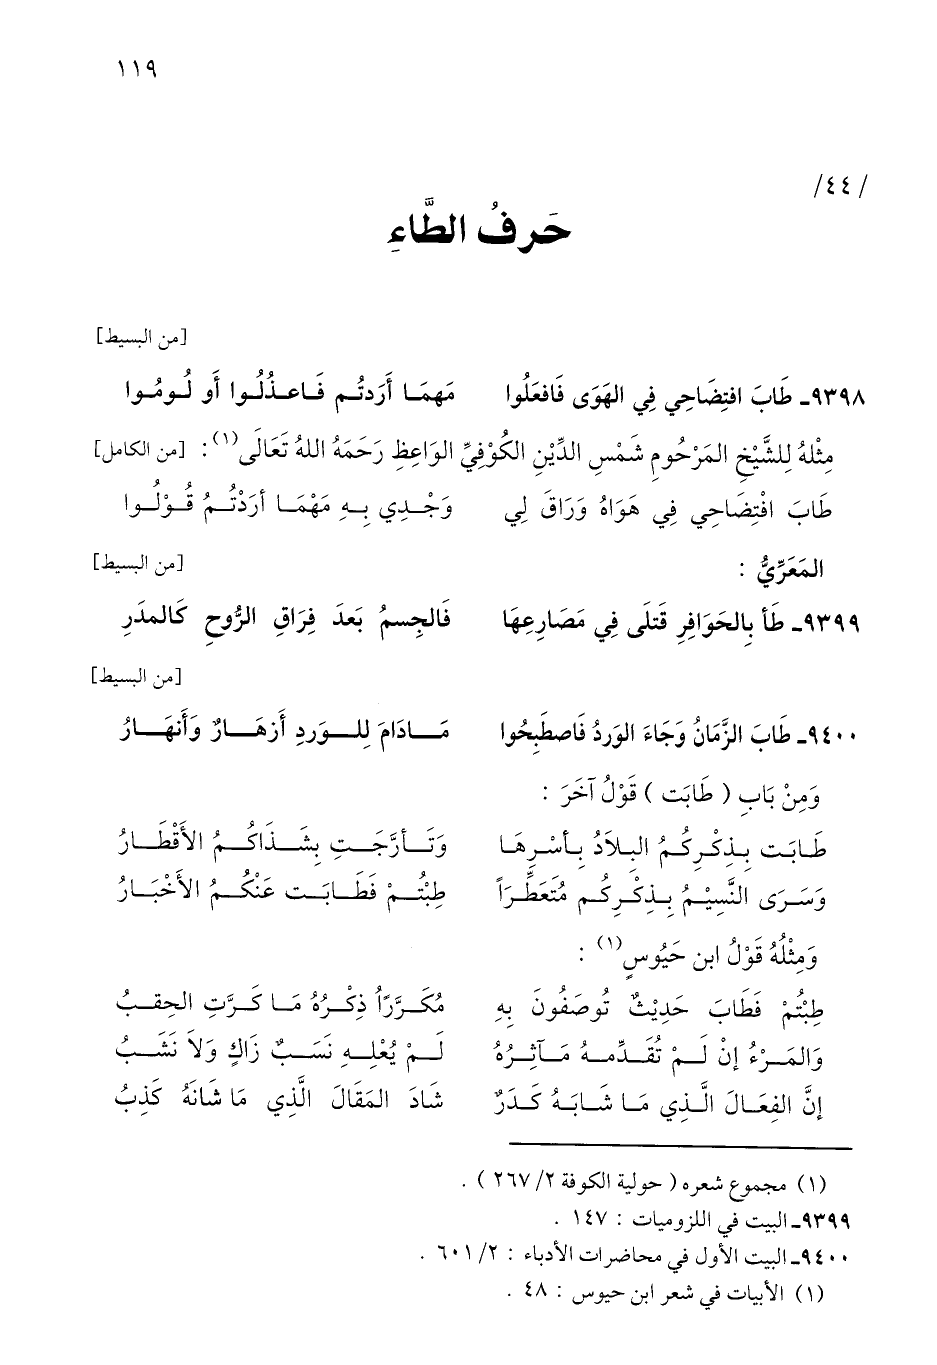 ١١٩
/٤٤/
حَرفُ الطَّاءِ
[من البسيط]
٩٣٩٨ـ طَابَ افتِضَاحِي فِي الهَوَى فَافعَلُوا مَهمَا أَردتُم فَاعذُلُوا أَو لُومُوا
مِثْلهُ لِلشَّيْخِ المَرْحُومِ شَمْسِ الدِّيْنِ الكُوْفِيِّ الوَاعِظِ رَحَمَهُ اللهُ تَعَالَى(١) : [من الكامل]
طَابَ افْتِضَاحِي فِي هَوَاهُ وَرَاقَ لِي وَجْدِي بِهِ مَهْمَا أرَدْتُمُ قُوْلُوا
المَعَرِّيُّ : [من البسيط]
٩٣٩٩ـ طَأ بِالحَوَافِرِ قَتلَى فِي مَصَارِعِهَا فَالجِسمُ بَعدَ فِرَاقِ الرُّوحِ كَالمدَرِ
[من البسيط]
٩٤٠٠ـ طَابَ الزَّمَانُ وَجَاءَ الوَردُ فَاصطَبِحُوا مَادَامَ لِلوَردِ أَزهَارٌ وَأَنهَارُ
وَمِنْ بَابِ ( طَابَت ) قَوْلُ آخَرَ :
طَابَت بِذِكْرِكُمُ البِلاَدُ بِأسْرِهَا وَتَأرَّجَتِ بِشَذَاكُمُ الأَقْطَارُ
وَسَرَى النَّسِيْمُ بِذِكْرِكُم مُتَعَطِّرَاً طِبْتُمْ فَطَابَت عَنْكُمُ الأَخْبَارُ
وَمِثْلُهُ قَوْلُ ابن حَيُوسٍ(١) :
طِبْتُمْ فَطَابَ حَدِيْثٌ تُوصَفُونَ بِهِ مُكَرَّرَاً ذِكْرُهُ مَا كَرَّتِ الحِقبُ
وَالمَرْءُ إنْ لَمْ تُقَدِّمهُ مَآثِرُهُ لَمْ يُعْلِهِ نَسَبٌ زَاكٍ وَلاَ نَشَبُ
إنَّ الفِعَالَ الَّذِي مَا شَابَهُ كَدَرٌ شَادَ المَقَالَ الَّذِي مَا شَانَهُ كَذِبُ
(١) مجموع شعره ( حولية الكوفة ٢/ ٢٦٧ ) .
٩٣٩٩ـ البيت في اللزوميات : ١٤٧ .
٩٤٠٠ـ البيت الأول في محاضرات الأدباء : ٢/ ٦٠١ .
(١) الأبيات في شعر ابن حيوس : ٤٨ .